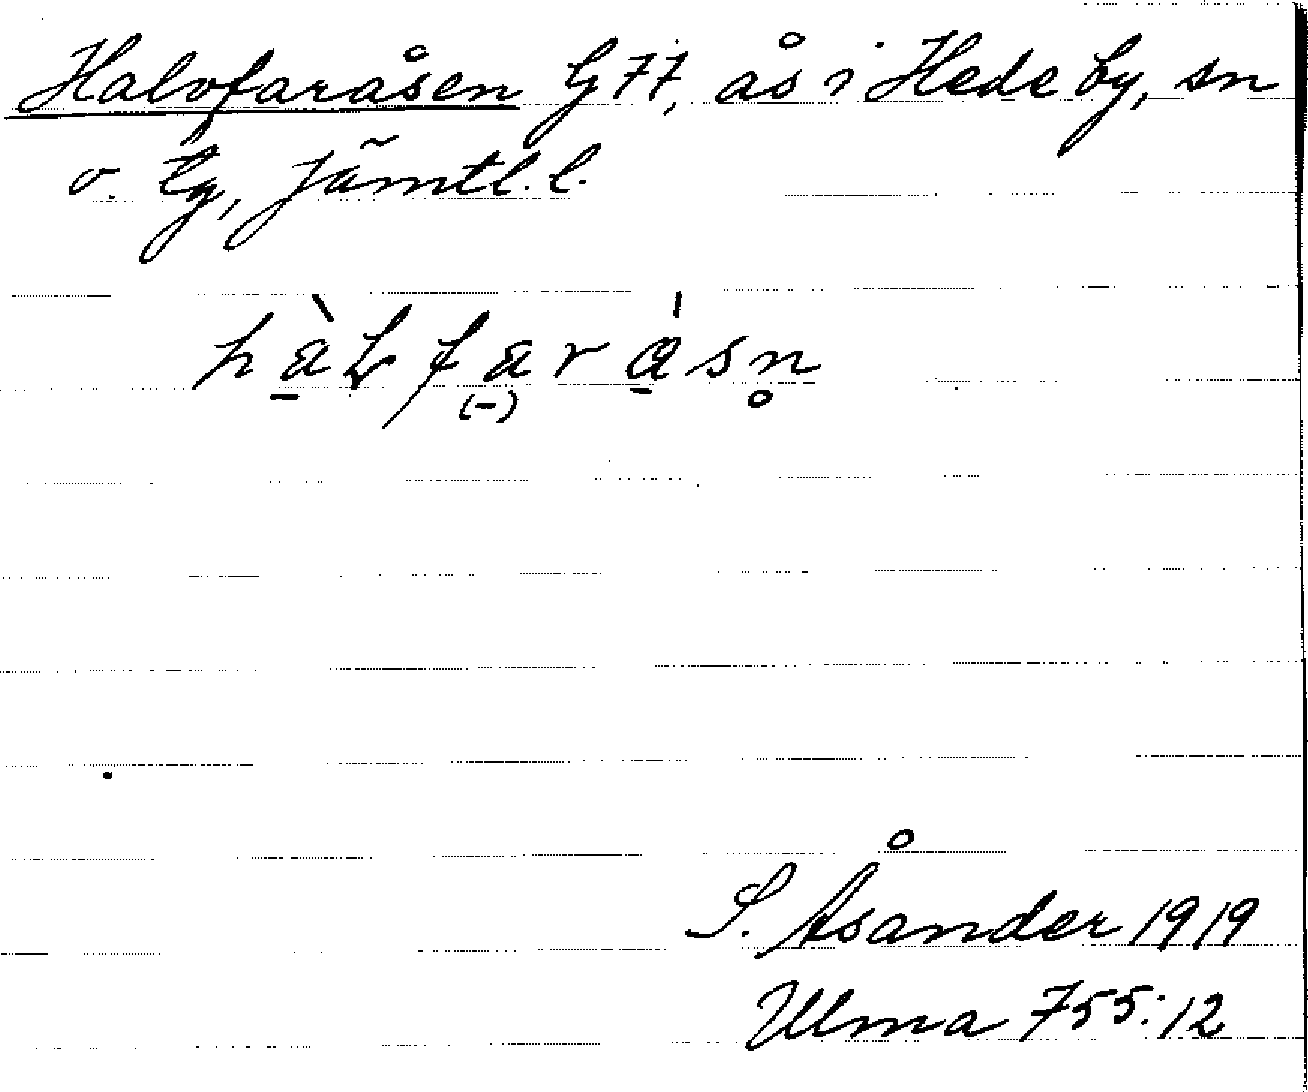 Halvfaråsen G 77, ås i Hede by, sn
o. tg, Jämtl. l.
hàlfaråsn
S. Åsander 1919
Ulma 755:12